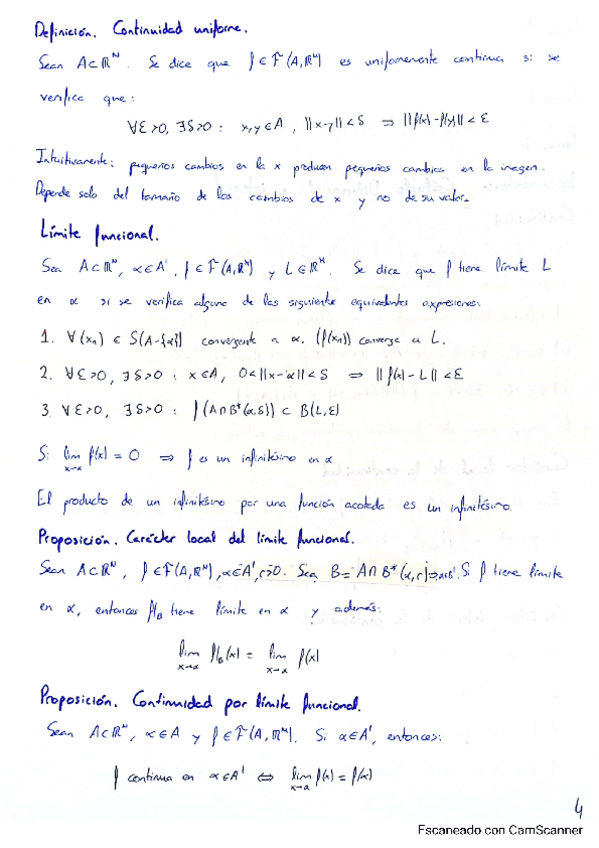 Definición. Continuidad uniforme.
Sean A⊂ℝᴺ. Se dice que f∈F(A,ℝᴹ) es uniformemente continua si se
verifica que:
∀ε>0, ∃δ>0 : x,y∈A, ||x-y||<δ ⇒ ||f(x)-f(y)||<ε
Intuitivamente: pequeños cambios en la x producen pequeños cambios en la imagen.
Depende solo del tamaño de los cambios de x y no de su valor.
Límite funcional.
Sea A⊂ℝᴺ, α∈A', f∈F(A,ℝᴹ) y L∈ℝᴹ. Se dice que f tiene límite L
en α si se verifica alguna de las siguiente equivalentes expresiones:
1. ∀(xₙ)∈S(A-{α}) convergente a α, (f(xₙ)) converge a L.
2. ∀ε>0, ∃δ>0 : x∈A, 0<||x-α||<δ ⇒ ||f(x)-L||<ε
3. ∀ε>0, ∃δ>0 : f(A∩B*(α,δ)) ⊂ B(L,ε)
Si lim x→α f(x) = 0 ⇒ f es un infinitésimo en α
El producto de un infinitésimo por una función acotada es un infinitésimo.
Proposición. Carácter local del límite funcional.
Sean A⊂ℝᴺ, f∈F(A,ℝᴹ), α∈A', r>0. Sea B=A∩B*(α,r)⇒α∈B'. Si f tiene límite
en α, entonces f|B tiene límite en α y además:
lim x→α f|B(x) = lim x→α f(x)
Proposición. Continuidad por límite funcional.
Sean A⊂ℝᴺ, α∈A y f∈F(A,ℝᴹ). Si α∈A', entonces:
f continua en α∈A' ⇔ lim x→α f(x) = f(α)
4
Escaneado con CamScanner